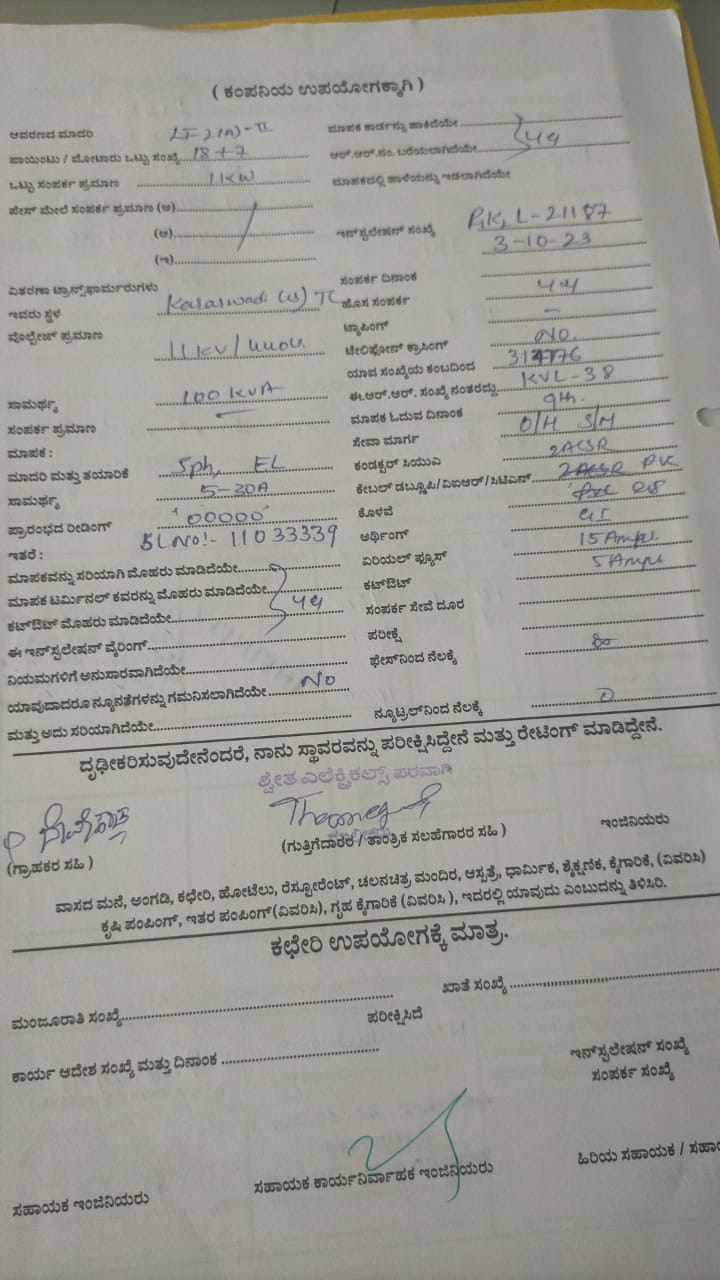 ( ಕಂಪನಿಯ ಉಪಯೋಗಕ್ಕಾಗಿ )
ಆವರಣದ ಮಾದರಿ LT-2(A)-II
ಪಾಯಿಂಟು / ಮೋಟಾರು ಒಟ್ಟು ಸಂಖ್ಯೆ 18+7
ಒಟ್ಟು ಸಂಪರ್ಕ ಪ್ರಮಾಣ 1KW
ಫೇಸ್ ಮೇಲೆ ಸಂಪರ್ಕ ಪ್ರಮಾಣ (ಅ)
(ಆ)
(ಇ)
ವಿತರಣಾ ಟ್ರಾನ್ಸ್‌ಫಾರ್ಮರುಗಳು
ಇವರು ಸ್ಥಳ Karaswadi TC
ವೋಲ್ಟೇಜ್ ಪ್ರಮಾಣ 11KV/440V
ಸಾಮರ್ಥ್ಯ 100 KVA
ಸಂಪರ್ಕ ಪ್ರಮಾಣ
ಮಾಪಕ :
ಮಾದರಿ ಮತ್ತು ತಯಾರಿಕೆ Sph, EL
ಸಾಮರ್ಥ್ಯ 5-20A
ಪ್ರಾರಂಭದ ರೀಡಿಂಗ್ "00000"
ಇತರೆ : SL No:- 11033339
ಮಾಪಕವನ್ನು ಸರಿಯಾಗಿ ಮೊಹರು ಮಾಡಿದೆಯೇ
ಮಾಪಕ ಟರ್ಮಿನಲ್ ಕವರನ್ನು ಮೊಹರು ಮಾಡಿದೆಯೇ
ಕಟ್‌ಔಟ್ ಮೊಹರು ಮಾಡಿದೆಯೇ
ಈ ಇನ್‌ಸ್ಟಲೇಷನ್ ವೈರಿಂಗ್
ನಿಯಮಗಳಿಗೆ ಅನುಸಾರವಾಗಿದೆಯೇ
ಯಾವುದಾದರೂ ನ್ಯೂನತೆಗಳನ್ನು ಗಮನಿಸಲಾಗಿದೆಯೇ No
ಮತ್ತು ಅದು ಸರಿಯಾಗಿದೆಯೇ
ಮಾಪಕ ಕಾರ್ಡನ್ನು ಹಾಕಿದೆಯೇ
ಆರ್.ಆರ್.ನಂ. ಬರೆಯಲಾಗಿದೆಯೇ
ಮಾಪಕದಲ್ಲಿ ಹಾಳೆಯನ್ನು ಇಡಲಾಗಿದೆಯೇ
ಇನ್‌ಸ್ಟಲೇಷನ್ ಸಂಖ್ಯೆ L-21187
3-10-23
ಸಂಪರ್ಕ ದಿನಾಂಕ
ಹೊಸ ಸಂಪರ್ಕ
ಟ್ಯಾಪಿಂಗ್ –
ಟೆಲಿಫೋನ್ ಕ್ರಾಸಿಂಗ್ No
ಯಾವ ಸಂಖ್ಯೆಯ ಕಂಬದಿಂದ
ಈ.ಆರ್.ಆರ್. ಸಂಖ್ಯೆ ನಂತರದ್ದು KVL-38
ಮಾಪಕ ಓದುವ ದಿನಾಂಕ 9th
ಸೇವಾ ಮಾರ್ಗ O/H S/M
ಕಂಡಕ್ಟರ್ ಸಿಯುವಿ 2ACSR
ಕೇಬಲ್ ಡಬ್ಲ್ಯೂಪಿ/ವಿಐಆರ್/ಸಿಟಿಎಸ್
ಕೊಳವೆ
ಅರ್ಥಿಂಗ್ GI
ಏರಿಯಲ್ ಫ್ಯೂಸ್ 15 Amps
ಕಟ್‌ಔಟ್ 5 Amps
ಸಂಪರ್ಕ ಸೇವೆ ದೂರ
ಪರೀಕ್ಷೆ
ಫೇಸ್‌ನಿಂದ ನೆಲಕ್ಕೆ
ನ್ಯೂಟ್ರಲ್‌ನಿಂದ ನೆಲಕ್ಕೆ 0
ದೃಢೀಕರಿಸುವುದೇನೆಂದರೆ, ನಾನು ಸ್ಥಾವರವನ್ನು ಪರೀಕ್ಷಿಸಿದ್ದೇನೆ ಮತ್ತು ರೇಟಿಂಗ್ ಮಾಡಿದ್ದೇನೆ.
ಶ್ವೇತ ಎಲೆಕ್ಟ್ರಿಕಲ್ಸ್ ಪರವಾಗಿ
(ಗ್ರಾಹಕರ ಸಹಿ )
(ಗುತ್ತಿಗೆದಾರರ / ತಾಂತ್ರಿಕ ಸಲಹೆಗಾರರ ಸಹಿ )
ಇಂಜಿನಿಯರು
ವಾಸದ ಮನೆ, ಅಂಗಡಿ, ಕಛೇರಿ, ಹೋಟೆಲು, ರೆಸ್ಟೋರೆಂಟ್, ಚಲನಚಿತ್ರ ಮಂದಿರ, ಆಸ್ಪತ್ರೆ, ಧಾರ್ಮಿಕ, ಶೈಕ್ಷಣಿಕ, ಕೈಗಾರಿಕೆ, (ವಿವರಿಸಿ)
ಕೃಷಿ ಪಂಪಿಂಗ್, ಇತರ ಪಂಪಿಂಗ್(ವಿವರಿಸಿ), ಗೃಹ ಕೈಗಾರಿಕೆ (ವಿವರಿಸಿ ), ಇದರಲ್ಲಿ ಯಾವುದು ಎಂಬುದನ್ನು ತಿಳಿಸಿರಿ.
ಕಛೇರಿ ಉಪಯೋಗಕ್ಕೆ ಮಾತ್ರ.
ಮಂಜೂರಾತಿ ಸಂಖ್ಯೆ
ಖಾತೆ ಸಂಖ್ಯೆ
ಪರೀಕ್ಷಿಸಿದೆ
ಕಾರ್ಯ ಆದೇಶ ಸಂಖ್ಯೆ ಮತ್ತು ದಿನಾಂಕ
ಇನ್‌ಸ್ಟಲೇಷನ್ ಸಂಖ್ಯೆ
ಸಂಪರ್ಕ ಸಂಖ್ಯೆ
ಸಹಾಯಕ ಇಂಜಿನಿಯರು
ಸಹಾಯಕ ಕಾರ್ಯನಿರ್ವಾಹಕ ಇಂಜಿನಿಯರು
ಹಿರಿಯ ಸಹಾಯಕ /